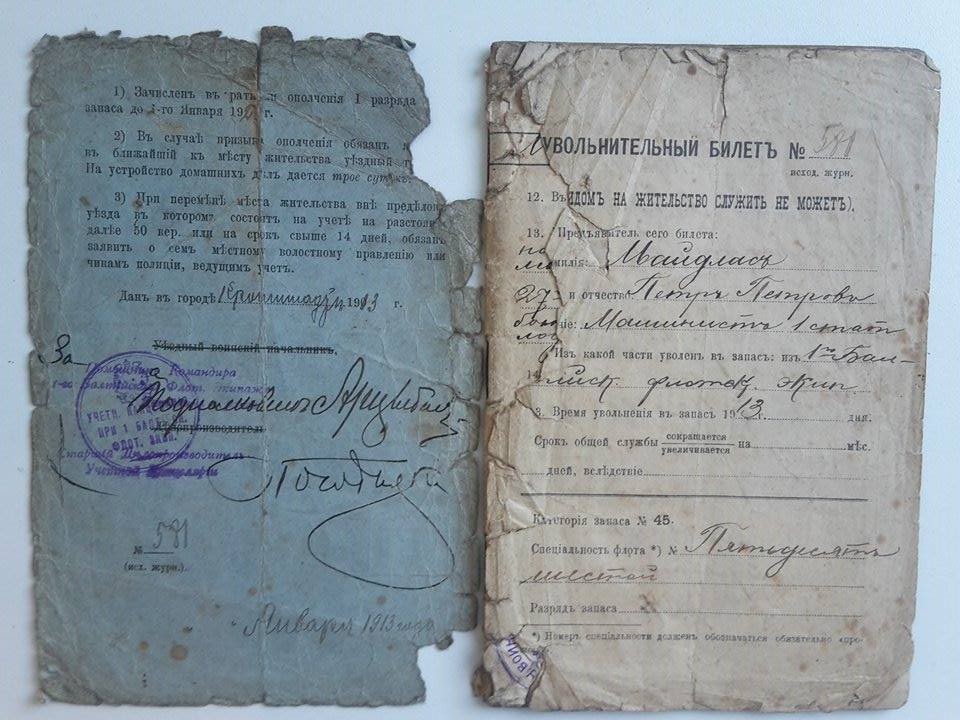 1) Зачисленъ въ рат и ополченія 1 разряда
запаса до 1-го Января 19 г.
2) Въ случаѣ призыва ополченія обязан
въ ближайшій къ мѣсту жительства уѣздный
На устройство домашнихъ дѣлъ дается трое суток
3) При перемѣнѣ мѣста жительства внѣ предѣло
уѣзда въ которомъ состоитъ на учетѣ на разстоя
далѣе 50 вер. или на срокъ свыше 14 дней, обязан
заявить о семъ мѣстному волостному правленію или
чинамъ полиціи, ведущимъ учетъ.
Данъ въ городѣ Кронштадтѣ 1913 г.
Уѣздный воинскій начальникъ,
За
Командира
1-го Балтійскаго Флот. экипажа
Подполковникъ
УЧЕТН.
ПРИ 1 БАЛТ.
ФЛОТ. ЭКИП.
Дѣлопроизводитель
Старшій Дѣлопроизводитель
Учетной Канцеляріи
№ 581
(исх. журн.).
Января 1913 года
УВОЛЬНИТЕЛЬНЫЙ БИЛЕТЪ № 581
исход. журн.
12. ВИДОМЪ НА ЖИТЕЛЬСТВО СЛУЖИТЬ НЕ МОЖЕТЪ).
13. Предъявитель сего билета:
милія: Майдласъ
и отчество: Петръ Петровъ
ніе: Машинистъ 1 стат
Изъ какой части уволенъ въ запасъ: изъ 1го Бал-
тійск. флотск. экип
3. Время увольненія въ запасъ 1913 г. дня.
Срокъ общей службы сокращается на мѣс.
увеличивается
дней, вслѣдствіе
Категорія запаса № 45.
Спеціальность флота *) № Пятьдесятъ
шестой
Разрядъ запаса
*) Номеръ спеціальности долженъ обозначаться обязательно «про-